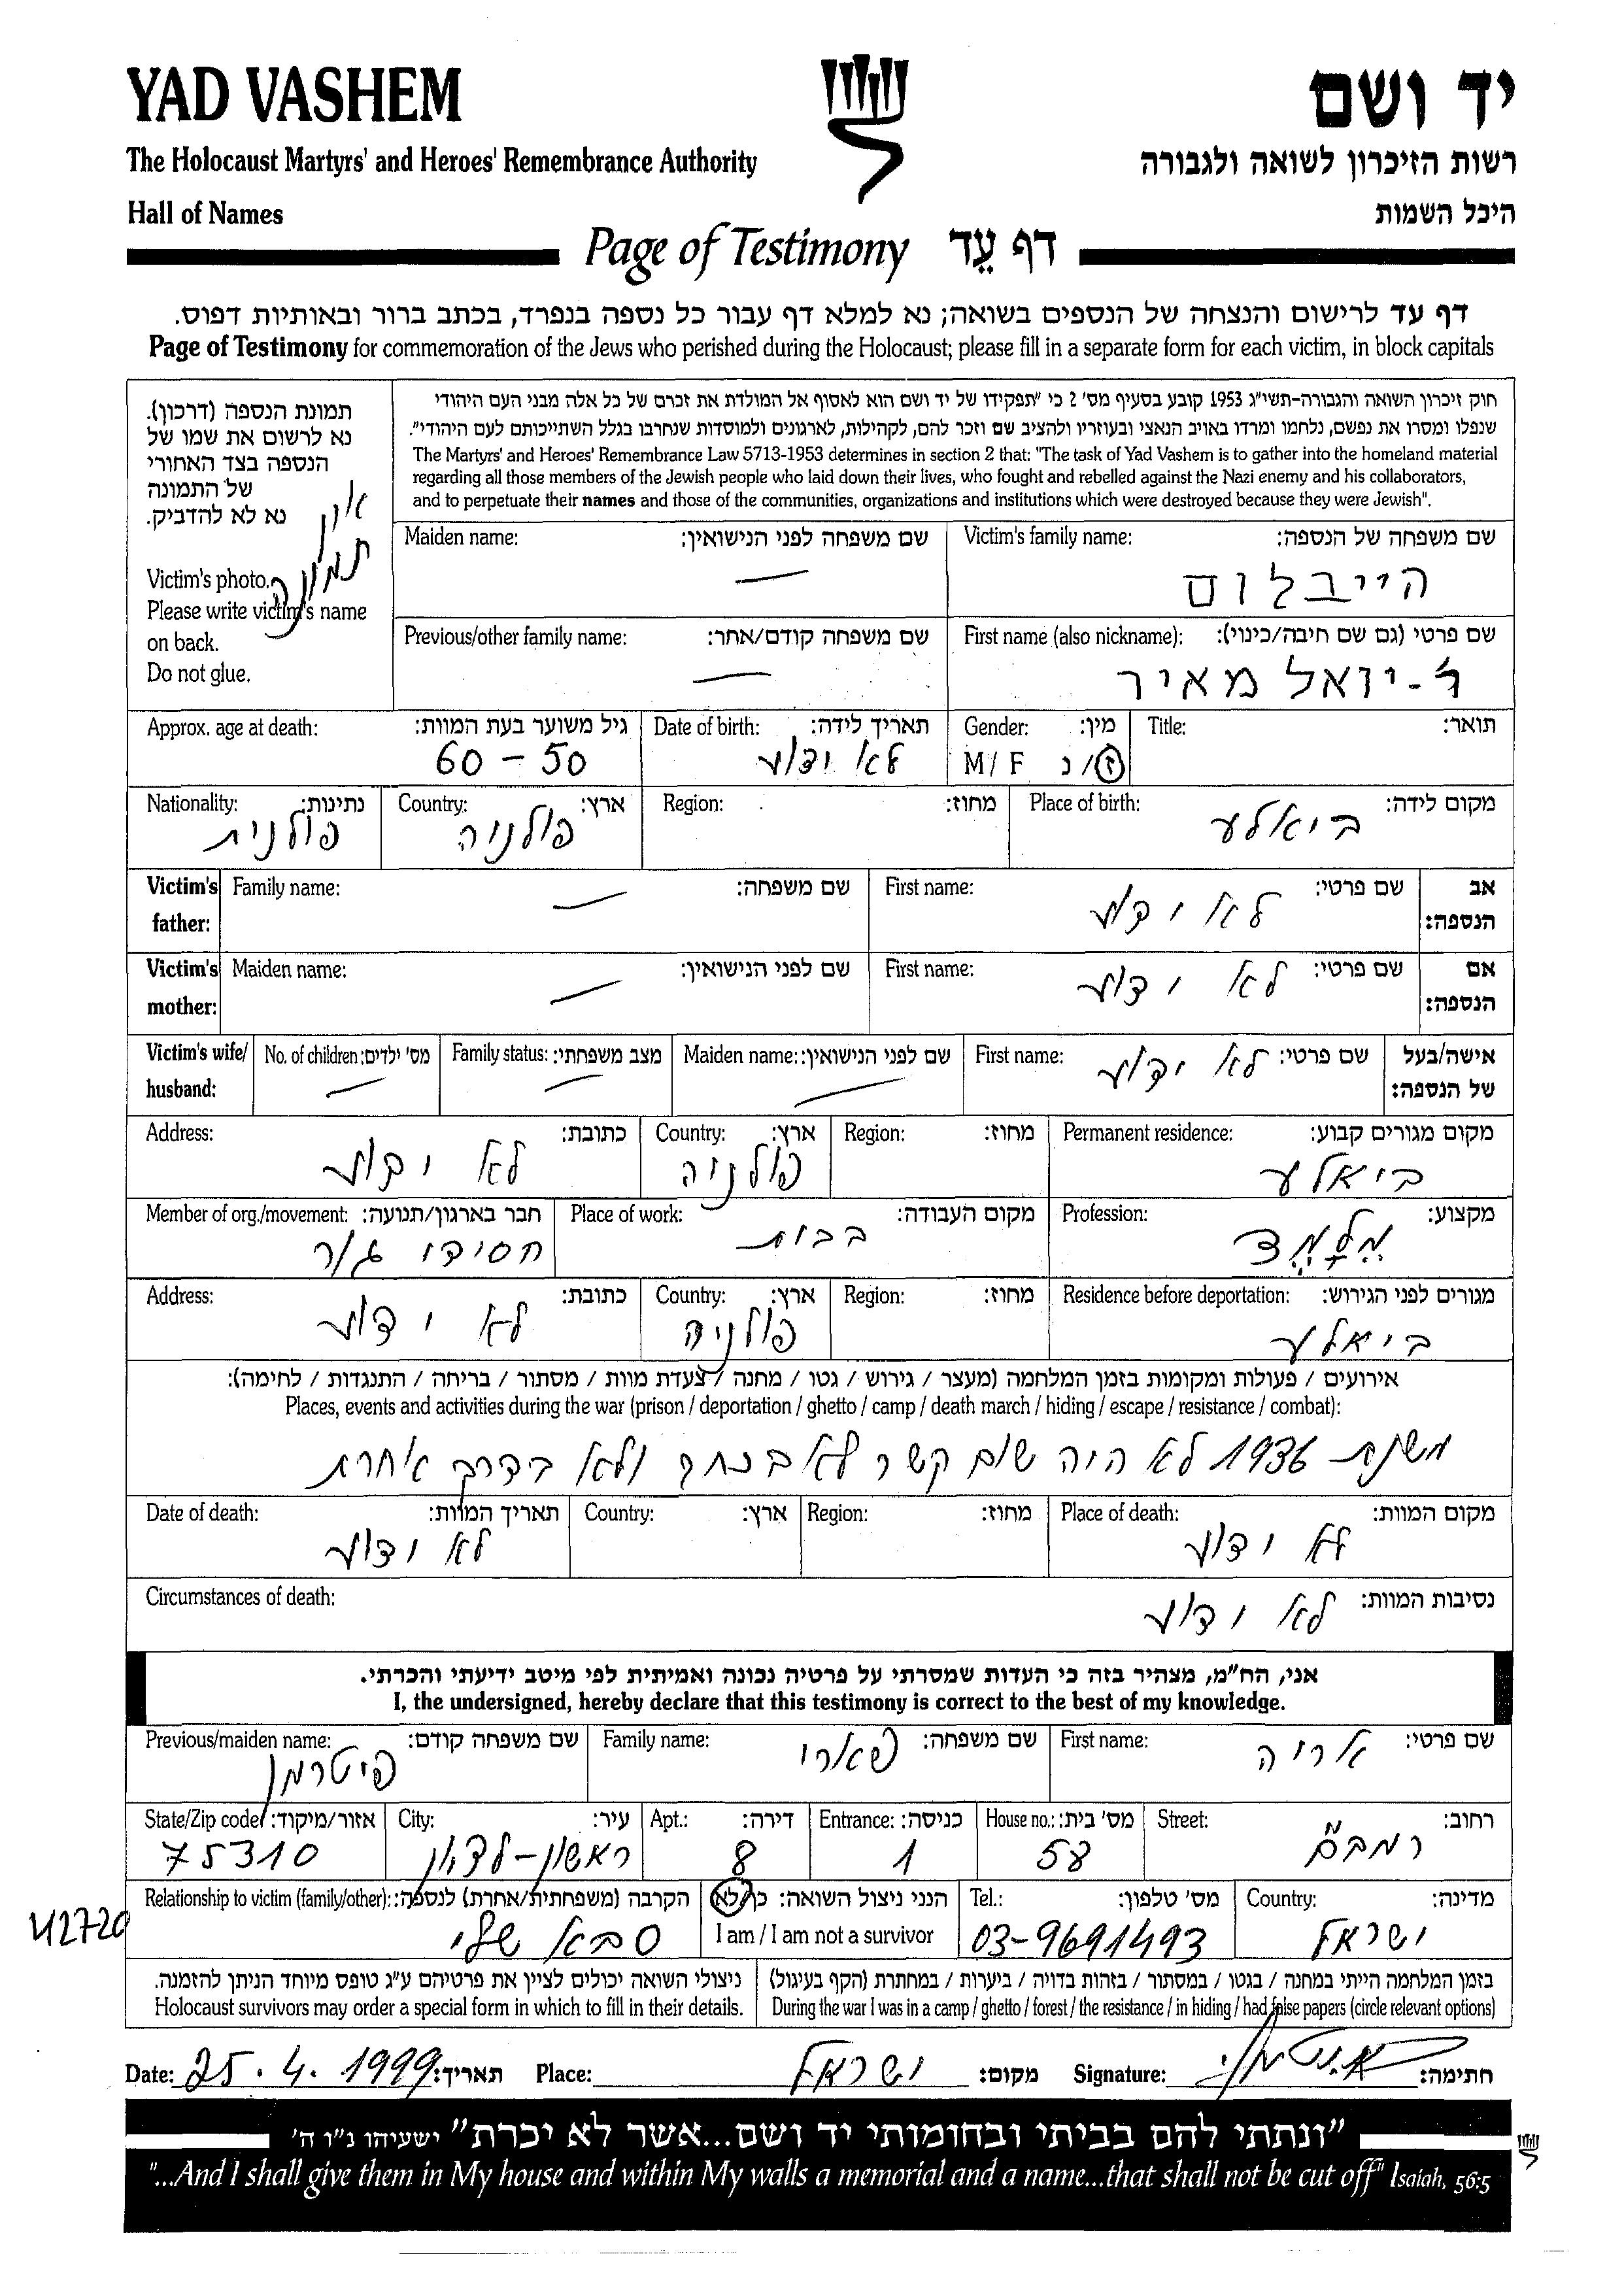 YAD VASHEM
יד ושם
The Holocaust Martyrs' and Heroes' Remembrance Authority
רשות הזיכרון לשואה ולגבורה
Hall of Names
היכל השמות
Page of Testimony דף עֵד
דף עד לרישום והנצחה של הנספים בשואה; נא למלא דף עבור כל נספה בנפרד, בכתב ברור ובאותיות דפוס.
Page of Testimony for commemoration of the Jews who perished during the Holocaust; please fill in a separate form for each victim, in block capitals
תמונת הנספה (דרכון).
נא לרשום את שמו של
הנספה בצד האחורי
של התמונה
נא לא להדביק.
אין
תמונה
Victim's photo.
Please write victim's name
on back.
Do not glue.
חוק זיכרון השואה והגבורה-תשי"ג 1953 קובע בסעיף מס' 2 כי "תפקידו של יד ושם הוא לאסוף אל המולדת את זכרם של כל אלה מבני העם היהודי
שנפלו ומסרו את נפשם, נלחמו ומרדו באויב הנאצי ובעוזריו ולהציב שם וזכר להם, לקהילות, לארגונים ולמוסדות שנחרבו בגלל השתייכותם לעם היהודי".
The Martyrs' and Heroes' Remembrance Law 5713-1953 determines in section 2 that: "The task of Yad Vashem is to gather into the homeland material
regarding all those members of the Jewish people who laid down their lives, who fought and rebelled against the Nazi enemy and his collaborators,
and to perpetuate their names and those of the communities, organizations and institutions which were destroyed because they were Jewish".
Victim's family name: שם משפחה של הנספה:
הייבלום
Maiden name: שם משפחה לפני הנישואין:
—
First name (also nickname): שם פרטי (גם שם חיבה/כינוי):
ר'-יואל מאיר
Previous/other family name: שם משפחה קודם/אחר:
—
Title: תואר:
Gender: מין:
M/ F ז/נ
Date of birth: תאריך לידה:
לא ידוע
Approx. age at death: גיל משוער בעת המוות:
60 - 50
Place of birth: מקום לידה:
ביאלע
Region: מחוז:
Country: ארץ:
פולניה
Nationality: נתינות:
פולנית
Victim's father: אב הנספה:
First name: שם פרטי:
לא ידוע
Family name: שם משפחה:
—
Victim's mother: אם הנספה:
First name: שם פרטי:
לא ידוע
Maiden name: שם לפני הנישואין:
—
Victim's wife/ husband: אישה/בעל של הנספה:
First name: שם פרטי: לא ידוע
Maiden name: שם לפני הנישואין:
—
Family status: מצב משפחתי:
—
No. of children: מס' ילדים:
—
Permanent residence: מקום מגורים קבוע:
ביאלע
Region: מחוז:
Country: ארץ:
פולניה
Address: כתובת:
לא ידוע
Profession: מקצוע:
מְלַמֵּד
Place of work: מקום העבודה:
בבית
Member of org./movement: חבר בארגון/תנועה:
חסידי גור
Residence before deportation: מגורים לפני הגירוש:
ביאלע
Region: מחוז:
Country: ארץ:
פולניה
Address: כתובת:
לא ידוע
אירועים / פעולות ומקומות בזמן המלחמה (מעצר / גירוש / גטו / מחנה / צעדת מוות / מסתור / בריחה / התנגדות / לחימה):
Places, events and activities during the war (prison / deportation / ghetto / camp / death march / hiding / escape / resistance / combat):
משנת 1936 לא היה שום קשר לא בכתב ולא בדרך אחרת
Place of death: מקום המוות:
לא ידוע
Region: מחוז:
Country: ארץ:
Date of death: תאריך המוות:
לא ידוע
Circumstances of death: נסיבות המוות:
לא ידוע
אני, הח"מ, מצהיר בזה כי העדות שמסרתי על פרטיה נכונה ואמיתית לפי מיטב ידיעתי והכרתי.
I, the undersigned, hereby declare that this testimony is correct to the best of my knowledge.
First name: שם פרטי:
אריה
Family name: שם משפחה:
שארי
Previous/maiden name: שם משפחה קודם:
פיטרמן
Street: רחוב:
רמב"ם
House no.: מס' בית:
58
Entrance: כניסה:
1
Apt.: דירה:
8
City: עיר:
ראשון-לציון
State/Zip code: אזור/מיקוד:
75310
Country: מדינה:
ישראל
Tel.: מס' טלפון:
03-9691493
הנני ניצול השואה: כן/לא
I am / I am not a survivor
Relationship to victim (family/other): הקרבה (משפחתית/אחרת) לנספה:
סבא שלי
42720
בזמן המלחמה הייתי במחנה / בגטו / במסתור / בזהות בדויה / ביערות / במחתרת (הקף בעיגול)
During the war I was in a camp / ghetto / forest / the resistance / in hiding / had false papers (circle relevant options)
ניצולי השואה יכולים לציין את פרטיהם ע"ג טופס מיוחד הניתן להזמנה.
Holocaust survivors may order a special form in which to fill in their details.
Date: 25.4.1999 תאריך: Place: ישראל מקום: Signature: חתימה:
"ונתתי להם בביתי ובחומותי יד ושם...אשר לא יכרת" ישעיהו נ"ו ה'
"...And I shall give them in My house and within My walls a memorial and a name...that shall not be cut off" Isaiah, 56:5